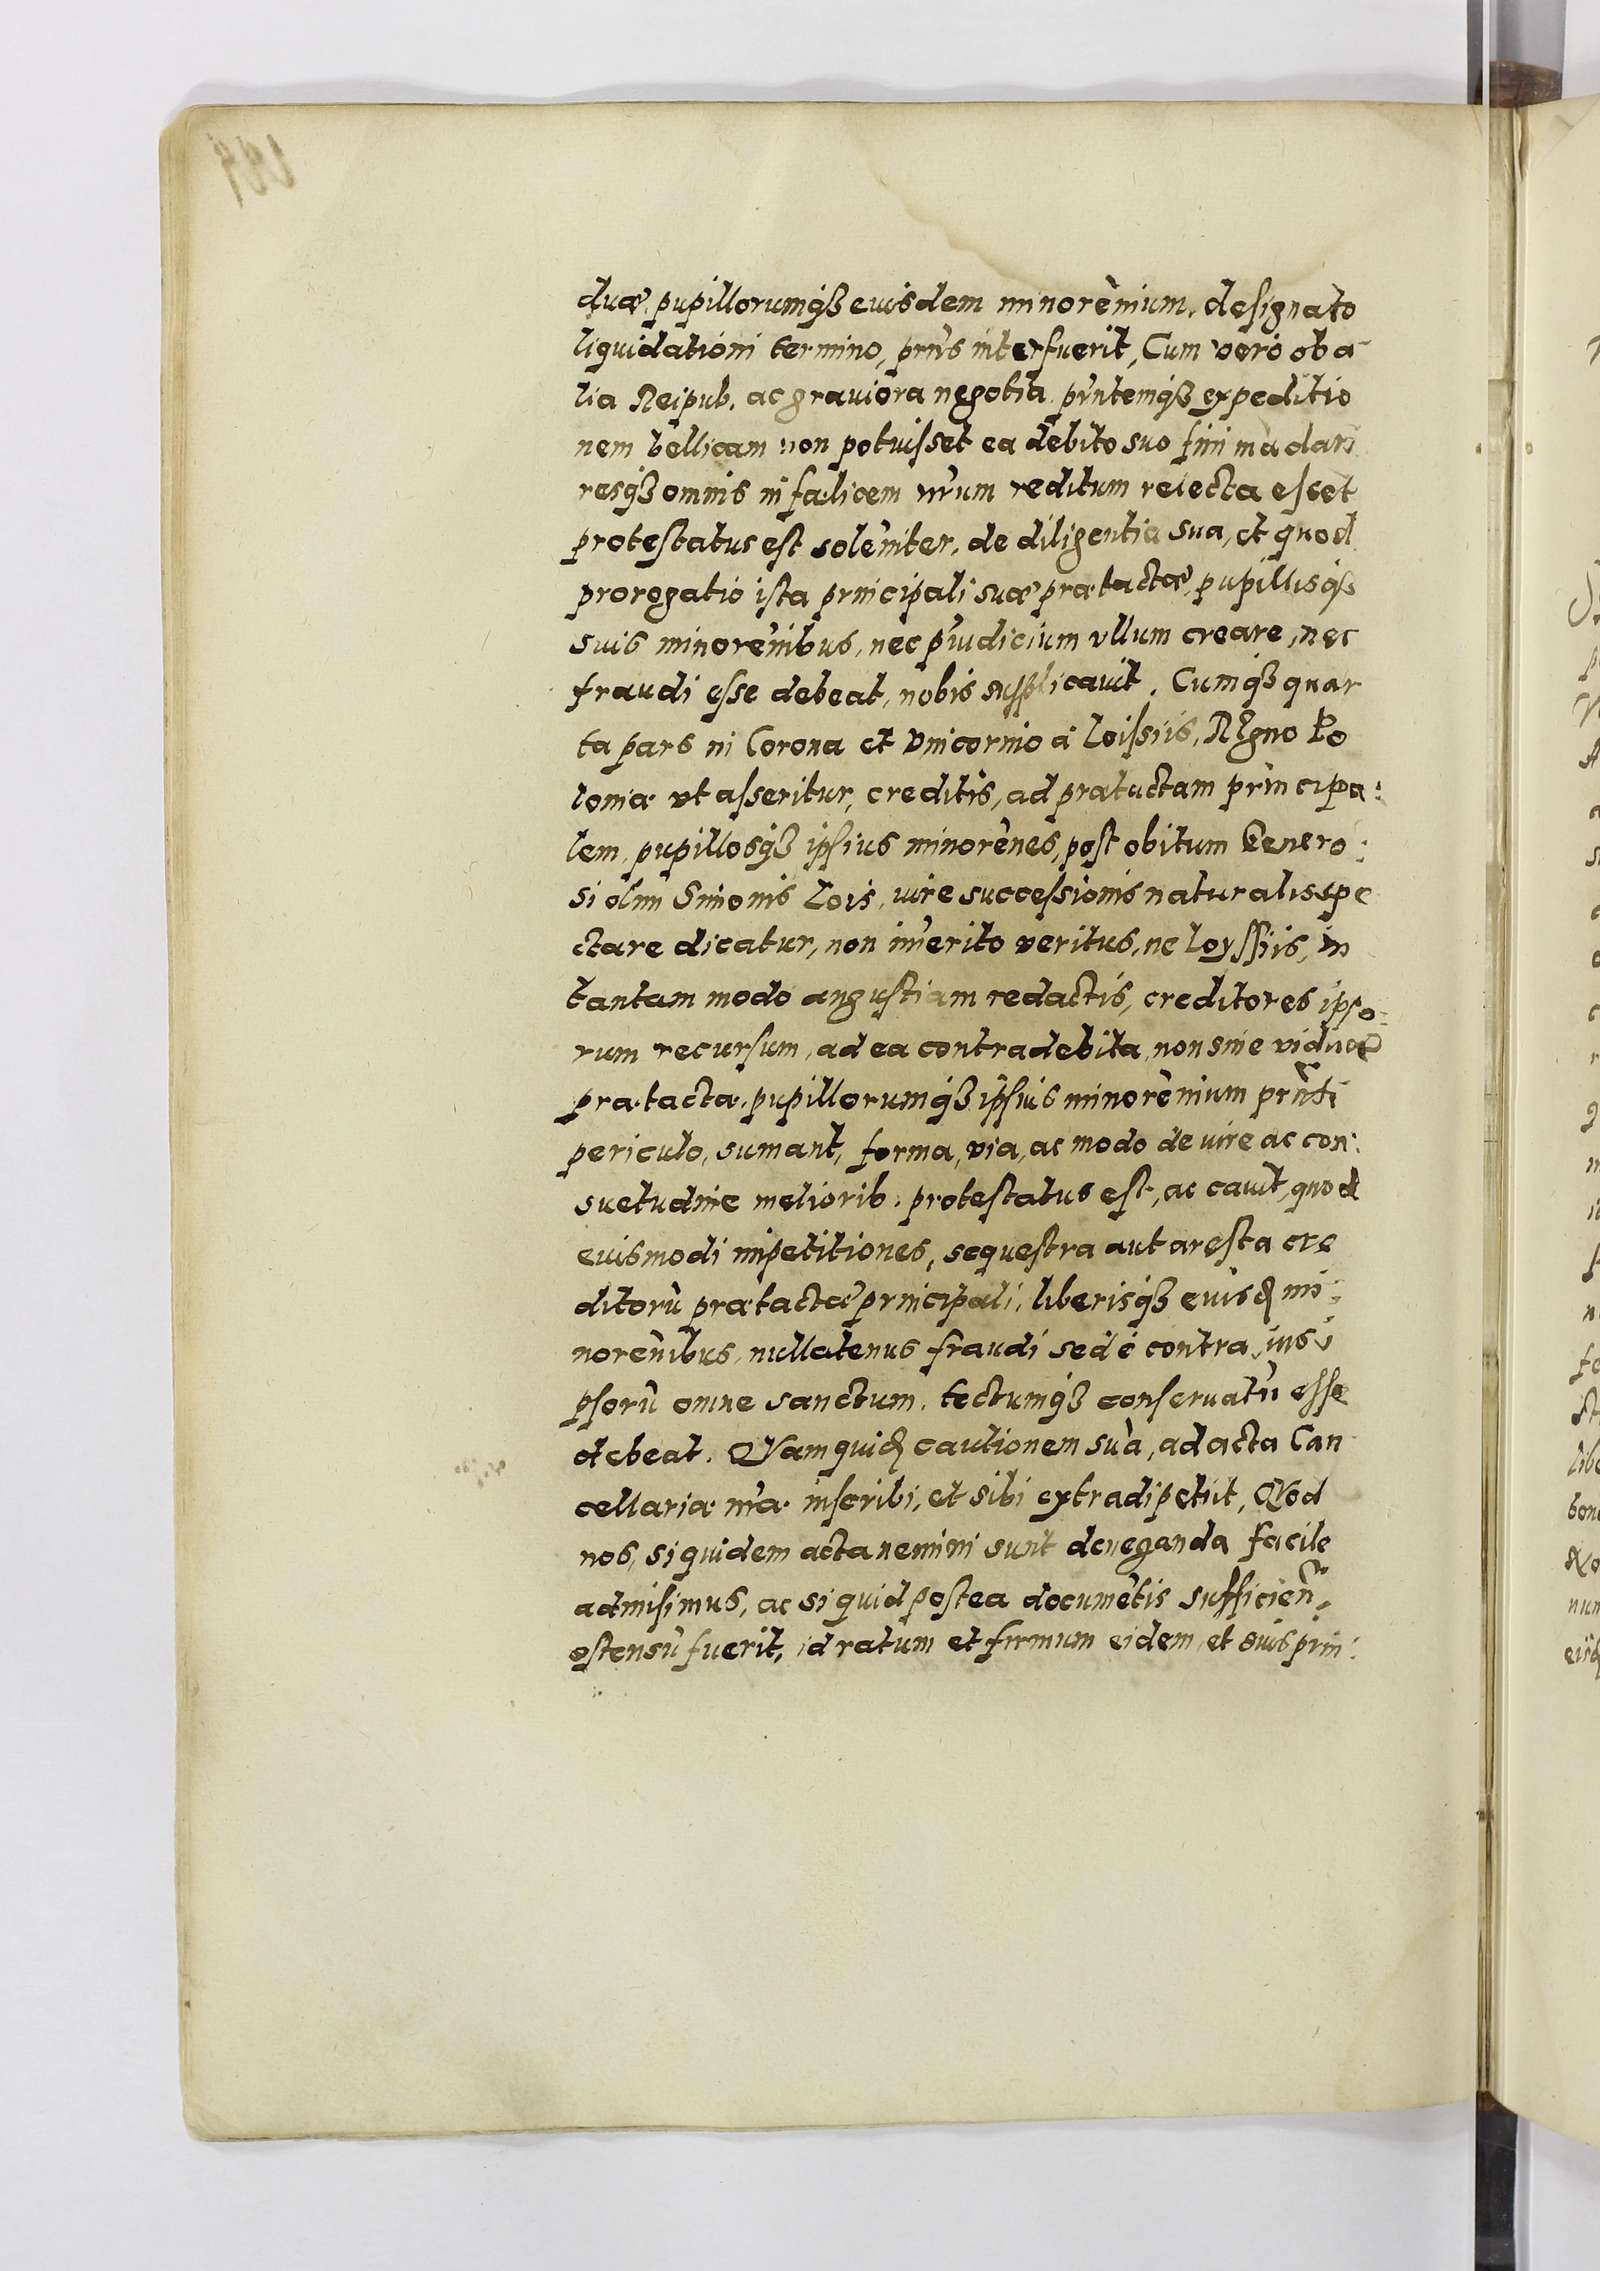 duæ, pupillorumqꝫ eiusdem minorēnium, designato
liquidationi termino, prius interfuerit, Cum vero ob a
lia Reipub. ac grauiora negotia pn̄temqꝫ expeditio
nem bellicam non potuisset ea debito suo fini mādari
resqꝫ omnis in fælicem nr̄um reditum reiecta esset
protestatus est solēniter, de diligentia sua, et quod
prorogatio ista principali suæ prætactæ, pupillisqꝫ
suis minorēnibus, nec p̄iudicium vllum creare, nec
fraudi esse debeat, nobis supplicauit. Cumqꝫ quar
ta pars in Corona et Vnicornio à Loissiis, REgno Po
loniæ vt asseritur, creditis, ad prætactam principa:
lem, pupillosqꝫ ipsius minorēnes, post obitum Genero:
si olim Simonis Lois, iure successionis naturalis spe
ctare dicatur, non im̄erito veritus, ne Loyssiis, in
tantam modo angustiam redactis, creditores ipso:
rum recursum, ad ea contradebita, non sine viduæ
prætactæ, pupillorumqꝫ ipsius minorēnium pn̄ti
periculo, sumant, forma, via, ac modo de iure ac con:
suetudine meliorib. protestatus est, ac cauit, quod
eiusmodi impetitiones, sequestra aut aresta cre
ditorū prætactæ principali, liberisqꝫ eiusd̄ mi:
norēnibus, nullatenus fraudi sed è contra, ius i
psorū omne sanctum, tectumqꝫ conseruatū esse
debeat. QVam quid̄ cautionem suā, ad acta Can
cellariæ nr̄æ inscribi, et sibi extradi petiit, QVod
nos, siquidem acta nemini sunt deneganda facile
admisimus, ac si quid postea documētis sufficien̄.
ostensū fuerit, id ratum et firmum eidem, et suis prin: